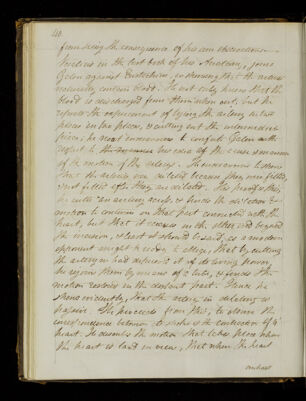 40.
from being the consequence of his own observations.
Vesalius in the last book of his Anatomy, joins
Galen against Erasistratus, in shewing that the arteries
naturally contain blood. He not only knew that the
blood is discharged from them when cut; but he
repeats the experiment of tying the artery in two
places in two places, & cutting out the intermediate
piece; he next endeavours to confute Galen with
respect to his idea of the cause & manner
of the motion of the artery. He endeavours to shew
that the arteries are dilated because they are filled,
& not filled because they are dilated. His proof is this;
he cuts an artery across, & finds the dilatation &
motion to continue in that part connected with the
heart, but that it ceases in the other end beyond
the incision, & lest it should be said, as a modern
opponent might be ready to allege, that by cutting
the artery in half deprives it of its living power,
he rejoins them by means of a tube, & finds the
motion restored in the distant part. Hence he
shews evidently, that the artery in dilating is
passive. He proceeds from this, to observe the
correspondence between the stroke & the contraction of the
heart. He describes the motion that takes place when
the heart is laid in view, that when the heart
contract